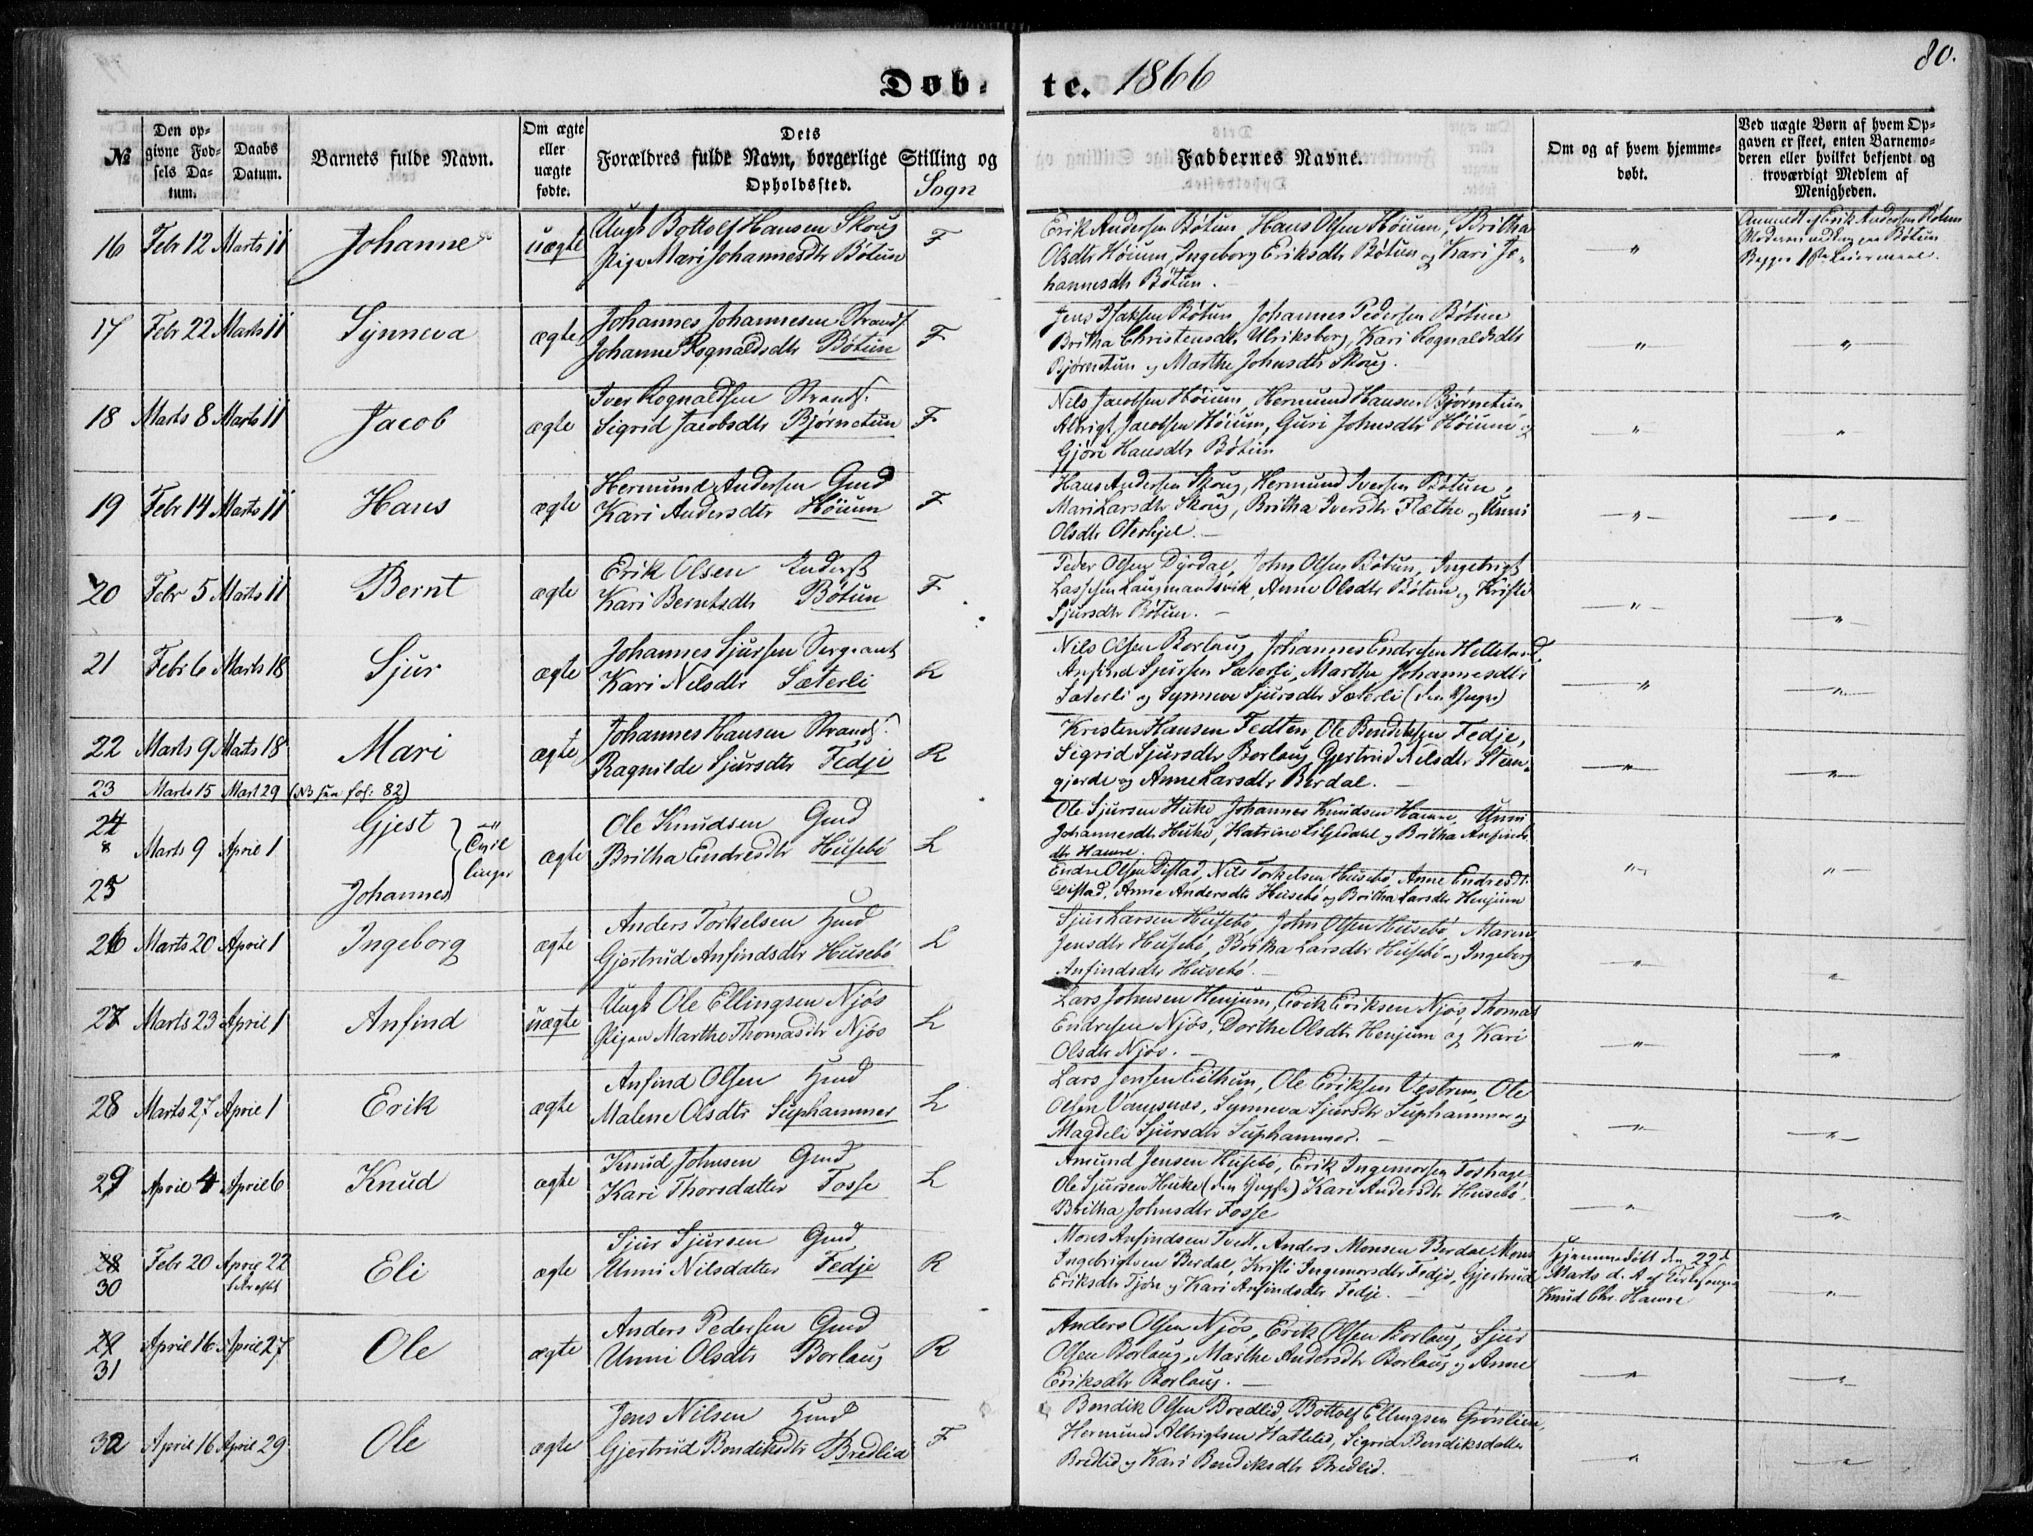 80.
Døbte. 1866
№
Den opgivne Fødsels Datum.
Daabs Datum.
Barnets fulde Navn.
Om ægte eller uægte fødte.
Dets Forældres fulde Navn, borgerlige Stilling og Opholdssted.
Sogn
Faddernes Navne.
Om og af hvem hjemmedøbt.
Ved uægte Børn af hvem Opgaven er skeet, enten Barnemoderen eller hvilket bekjendt og troværdigt Medlem af Menigheden.
16 Febr 12 Marts 11 Johanne uægte
Ungk Bottolf Hansen Skoug
Pige Mari Johannesdtr Bøtun F
Erik Andersen Bøtun, Hans Olsen Høium, Britha
Olsdtr Høium, Ingeborg Eriksdtr Bøtun og Kari Jo-
hannesdtr Bøtun.
"
Anmeldt af Erik Andersen Bøtun
17 Febr 22 Marts 11 Synneva ægte
Johannes Johannesen Strands.
Johanne Rognaldsdtr Bøtun F
Jens Isaksen Bøtun, Johannes Pedersen Bøtun
Britha Christensdtr Ulriksborg, Kari Rognaldsdtr
Bjørnetun og Marthe Johnsdtr Skoug.
" "
18 Marts 8 Marts 11 Jacob ægte
Iver Rognaldsen Strands.
Sigrid Jacobsdtr Bjørnetun F
Nils Jacobsen Høium, Hermund Hansen Bjørnetun
Albrigt Jacobsen Høium, Guri Johnsdtr Høium og
Gjøri Hansdtr Bøtun
" "
19 Febr 14 Marts 11 Hans ægte
Hermund Andersen Gmd
Kari Andersdtr Høium F
Hans Andersen Skoug, Hermund Iversen Bøtun,
Mari Larsdtr Skoug, Britha Iversdtr Flæthe og Unni
Olsdtr
" "
20 Febr 5 Marts 11 Bernt ægte
Erik Olsen Inderst
Kari Berntsdtr Bøtun F
Peder Olsen Dyrdal, John Olsen Bøtun, Ingebrigt
Lassesen Laugmandsvik, Anne Olsdtr Bøtun og Kristi
Sjursdtr Bøtun.
" "
21 Febr 6 Marts 18 Sjur ægte
Johannes Sjursen Sergeant
Kari Nilsdtr Sæterli R
Nils Olsen Borlaug, Johannes Endresen Hellstand,
Anfind Sjursen Sæterli, Marthe Johannesdtr
Sæterli og Synneve Sjursdtr Sæterli (den Yngre)
" "
22 Marts 9 Marts 18 Mari ægte
Johannes Hansen Strands.
Ragnilde Sjursdtr Fedje R
Kristen Hansen Fedten, Ole Bendiksen Fedje,
Sigrid Sjursdtr Borlaug, Gjertrud Nilsdtr Sten-
gjerde og Anne Larsdtr Berdal.
" "
23 Marts 15 Mart 29 (Nb see fol: 82)
24 & 25 Marts 9 April 1 Gjest Johannes Tvillinger ægte
Ole Knudsen Gmd
Britha Endresdtr Husebø L
Ole Sjursen Huke, Johannes Knudsen Hamre, Unni
Johannesdtr Huke, Katrine Liljedahl og Britha Anfinds
dtr Hamre.
Endre Olsen Distad, Nils Torkelsen Husebø, Anne Endresdt.
Distad, Anne Andersdtr Husebø og Britha Larsdtr Henjum
" "
26 Marts 20 April 1 Ingeborg ægte
Anders Torkelsen Hmd
Gjertrud Anfindsdtr Husebø L
Sjur Larsen Husebø, John Olsen Husebø, Maren
Jensdtr Husebø, Britha Larsdtr Husebø og Ingeborg
Anfindsdtr Husebø.
" "
27 Marts 23 April 1 Anfind uægte
Ungk Ole Ellingsen Njøs
Pigen Marthe Thomasdtr Njøs L
Lars Johnsen Henjum, Erik Eriksen Njøs, Thomas
Endresen Njøs, Dorthe Olsdtr Henjum og Kari
Olsdtr Njøs.
" "
28 Marts 27 April 1 Erik ægte
Anfind Olsen Hmd
Malene Olsdtr Suphammer L
Lars Jensen Eithun, Ole Eriksen Vestrem, Ole
Olsen Vangsnæs, Synneva Sjursdtr Suphammer og
Magdeli Sjursdtr Suphammer.
" "
29 April 4 April 6 Knud ægte
Knud Johnsen Gmd
Kari Thorsdatter Fosse L
Amund Jensen Husebø, Erik Ingemorsen Toshage
Ole Sjursen Huke (den Yngste) Kari Andersdtr Husebø
Britha Johnsdtr Fosse
" "
28 30 Febr 20 April 22 Eli ægte
Sjur Sjursen Gmd
Unni Nilsdatter Fedje R
Mons Anfindsen Tvedt, Anders Monsen Berdal, Mons
Ingebrigtsen Berdal, Kristi Ingemorsdtr Fedje, Gjertrud
Eriksdtr Tjøn og Kari Anfindsdtr Fedje.
Hjemmedøbt den 22d
Marts d. A. af Kirkesanger
Knud Chr. Hamre
"
29 31 April 16 April 27 Ole ægte
Anders Pedersen Gmd
Unni Olsdtr Borlaug R
Anders Olsen Njøs, Erik Olsen Borlaug, Sjur
Olsen Borlaug, Marthe Andersdtr Borlaug og Anne
Eriksdtr Borlaug.
" "
32 April 16 April 29 Ole ægte
Jens Nilsen Hmd
Gjertrud Bendiksdtr Bredlid F
Bendik Olsen Bredlid, Bottolf Ellingsen Grønlien,
Hermund Albrigtsen Hatteled, Sigrid Bendiksdatter
Bredlid og Kari Bendiksdtr Bredlid.
" "